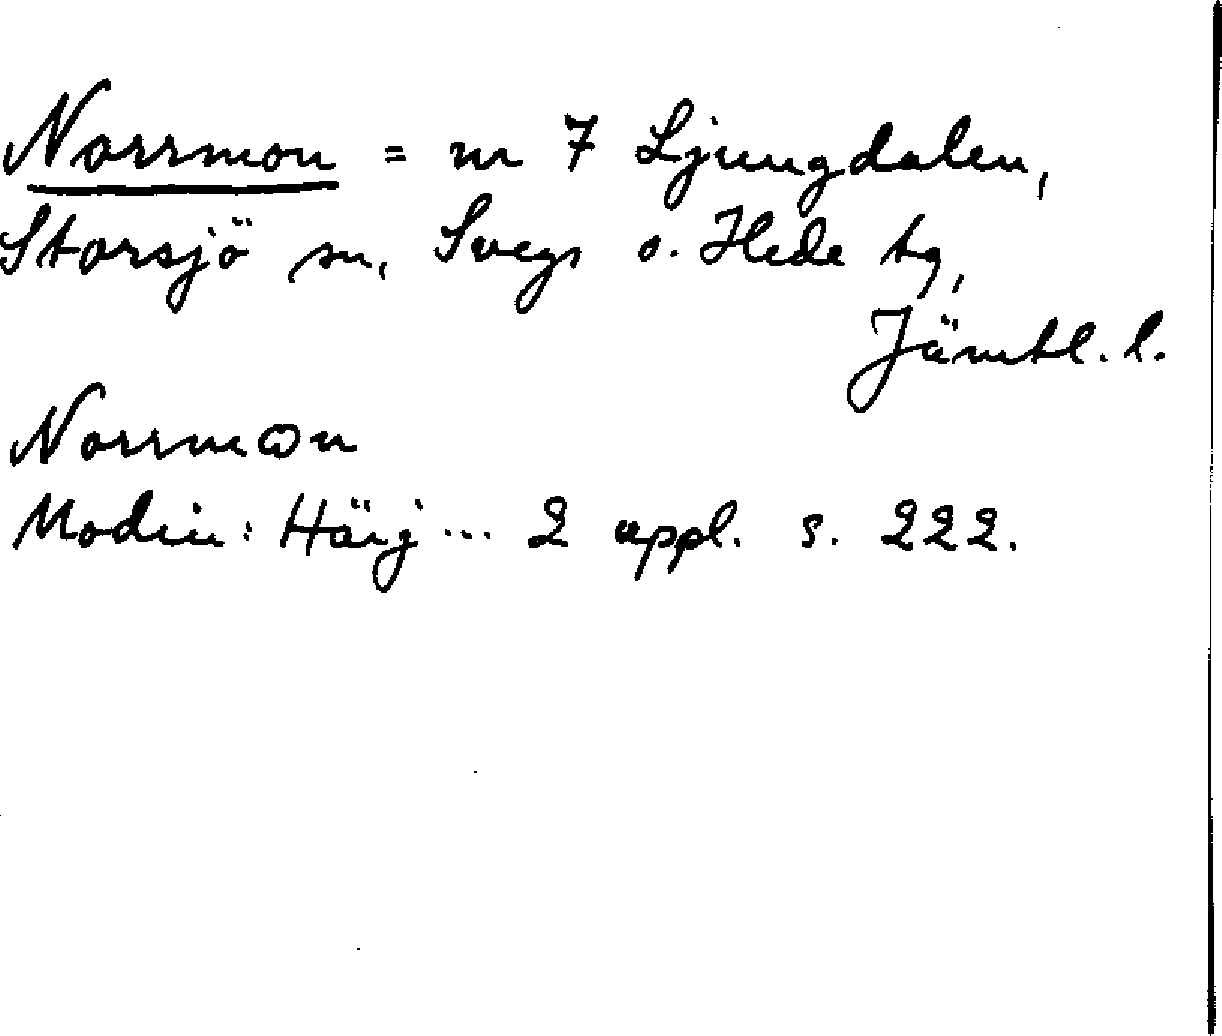 Norrmon = nr 7 Ljungdalen,
Storsjö sn, Svegs o. Hede tg,
Jämtl. l.
Norrmon
Modin: Härj... 2 uppl. s. 222.